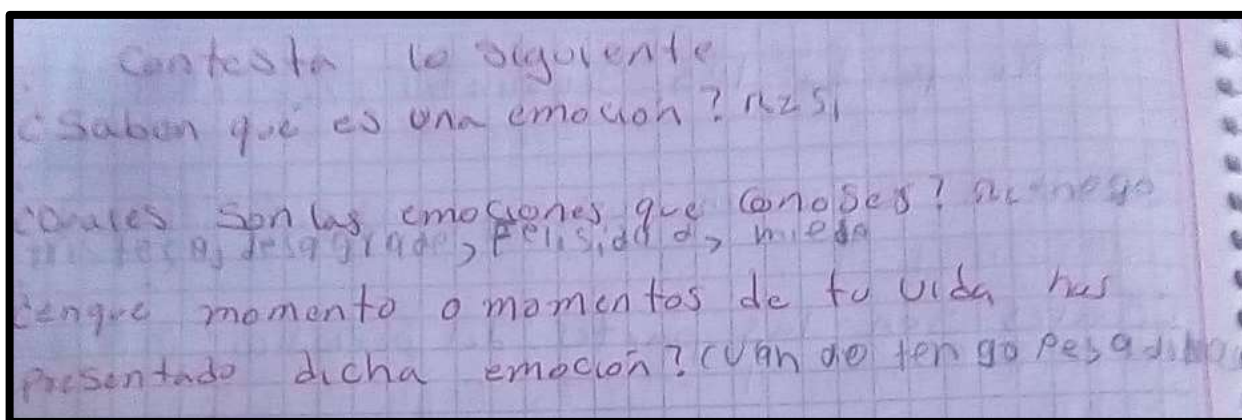 contesta lo siguiente
¿Saben que es una emocion? R= Si
¿Cuales son las emociones que conoses?
tristesa, desagrado, Felisidad, miedo
¿enque momento o momentos de tu vida has
presentado dicha emoción? Cuando tengo Pesadilla